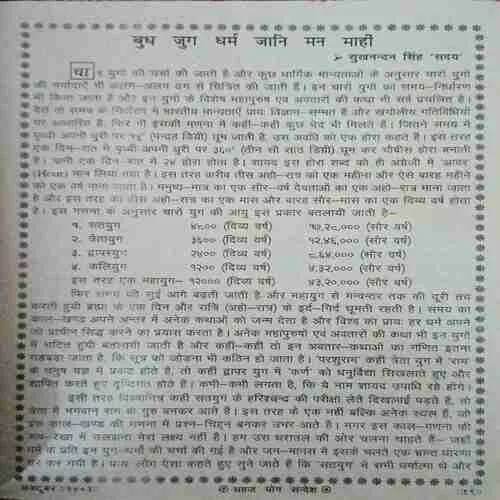 बुध जुग धर्म जानि मन माहीं
➢ सुखनन्दन सिंह 'सदय'
चार युगों की चर्चा की जाती है और कुछ धार्मिक मान्यताओं के अनुसार चारों युगों
की मर्यादाएँ भी अलग-अलग ढंग से चित्रित की जाती हैं। इन चारों युगों का समय-निर्धारण
भी किया जाता है और इन युगों के विशेष महापुरुष एवं अवतारों की कथा भी सर्व प्रचलित है।
वैसे तो समय के निर्धारण में भारतीय मान्यताएँ प्रायः विज्ञान-सम्मत हैं और खगोलीय गतिविधियों
पर आधारित हैं, फिर भी इसकी गणना में कहीं-कहीं कुछ भेद भी मिलते हैं। जितने समय में
पृथ्वी अपनी धुरी पर १५° (पन्द्रह डिग्री) घूम जाती है, उस अवधि को एक होरा कहते हैं। इस तरह
एक दिन-रात में पृथ्वी अपनी धुरी पर ३६०° (तीन सौ साठ डिग्री) घूम कर चौबीस होरा बनाती
है। यानी एक दिन-रात में २४ होरा होता है। शायद इस होरा शब्द को ही अंग्रेजी में 'आवर'
(Hour) मान लिया गया है। इस तरह करीब तीस अहो-रात्र को एक महीना और ऐसे बारह महीने
को एक वर्ष माना जाता है। मनुष्य-मात्र का एक सौर-वर्ष देवताओं का एक अहो-रात्र माना जाता
है और इस तरह का तीस अहो-रात्र का एक मास और बारह सौर-मास का एक दिव्य वर्ष होता
है। इस गणना के अनुसार चारों युग की आयु इस प्रकार बतलायी जाती है-
१. सतयुग ४८०० (दिव्य वर्ष) १७,२८,००० (सौर वर्ष)
२. त्रेतायुग ३६०० (दिव्य वर्ष) १२,४६,००० (सौर वर्ष)
३. द्वापरयुग २४०० (दिव्य वर्ष) ८,६४,००० (सौर वर्ष)
४. कलियुग १२०० (दिव्य वर्ष) ४,३२,००० (सौर वर्ष)
इस तरह एक महायुग- १२००० (दिव्य वर्ष) ४३,२०,००० (सौर वर्ष)
फिर समय की सुई आगे बढ़ती जाती है और महायुग से मन्वन्तर तक की दूरी तय
करती हुयी ब्रह्मा के एक दिन और रात्रि (अहो-रात्र) के इर्द-गिर्द घूमती रहती है। समय का
काल-खण्ड अपने अन्तर में अनेक कथाओं को जन्म देता है और विश्व का प्रायः हर धर्म अपने
को प्राचीन सिद्ध करने का प्रयास करता है। अनेक महापुरुषों एवं अवतारों की कथा भी इन युगों
में घटित हुयी बतलायी जाती है और कहीं-कहीं तो इन अवतार-कथाओं का गणित इतना
गड़बड़ा जाता है, कि सूत्र को जोड़ना भी कठिन हो जाता है। 'परशुराम' कहीं त्रेता युग में 'राम'
के धनुष यज्ञ में प्रकट होते हैं, तो कहीं द्वापर युग में 'कर्ण' को धनुर्विद्या सिखलाते हुए और
शापित करते हुए दृष्टिगत होते हैं। कभी-कभी लगता है, कि ये नाम शायद उपाधि रहे होंगे।
इसी तरह विश्वामित्र कहीं सतयुग के हरिश्चन्द्र की परीक्षा लेते दिखलाई पड़ते हैं, तो
त्रेता में भगवान राम के गुरु बनकर आते हैं। इस तरह के एक नहीं बल्कि अनेक स्थल हैं, जो
इस काल-खण्ड की गणना में प्रश्न-चिह्न बनकर उभर आते हैं। मगर इस काल-गणना की
में उलझना मेरा लक्ष्य नहीं है। हम उस धरातल की ओर चलना चाहते हैं- जहाँ
धर्म के प्रति इन युग-धर्मों की चर्चा की गई है और जन-मानस में इसकी चलते एक भ्रान्त धारणा
घर कर गयी है। प्रायः लोग ऐसा कहते हुए सुने जाते हैं कि सतयुग में सभी धर्मात्मा थे और
सहज योग सन्देश